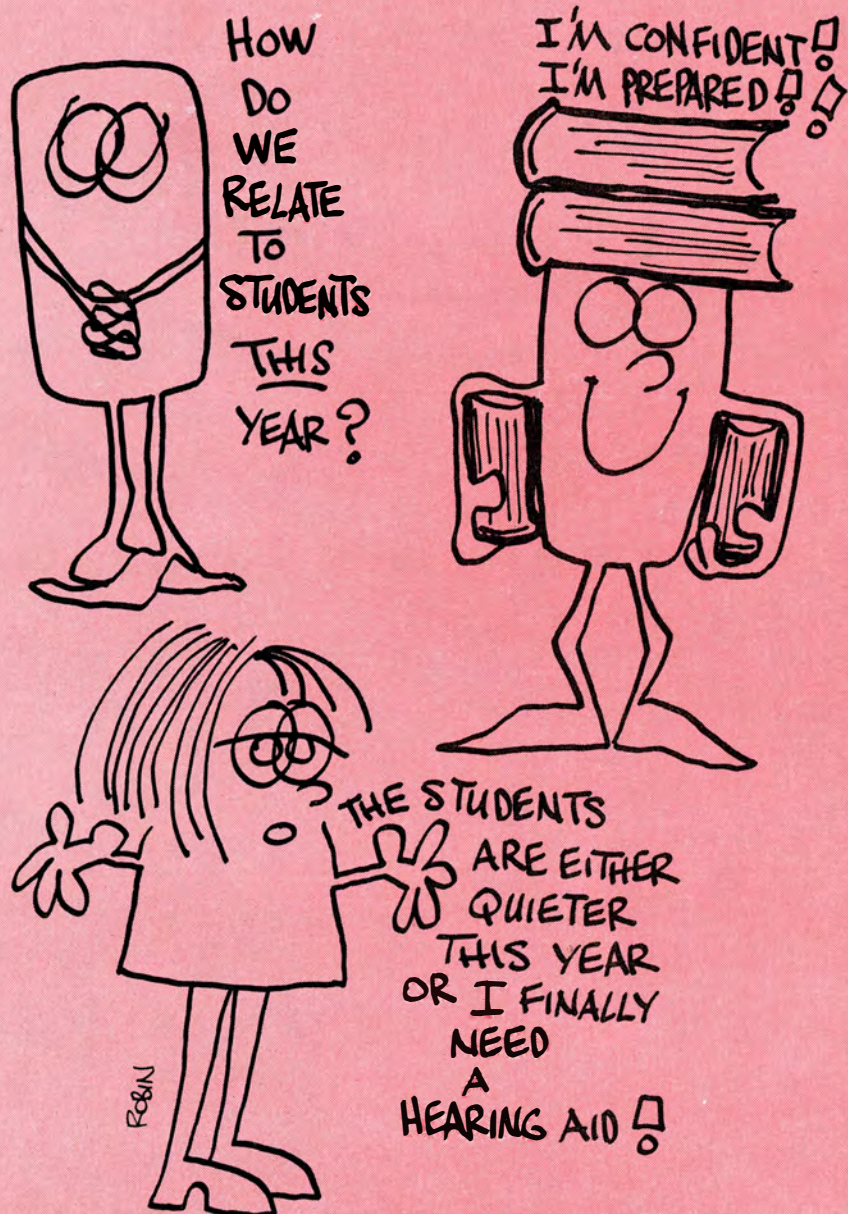 HOW
DO
WE
RELATE
TO
STUDENTS
THIS
YEAR?
I'M CONFIDENT!
I'M PREPARED!!
THE STUDENTS
ARE EITHER
QUIETER
THIS YEAR
OR I FINALLY
NEED
A
HEARING AID!
ROBIN